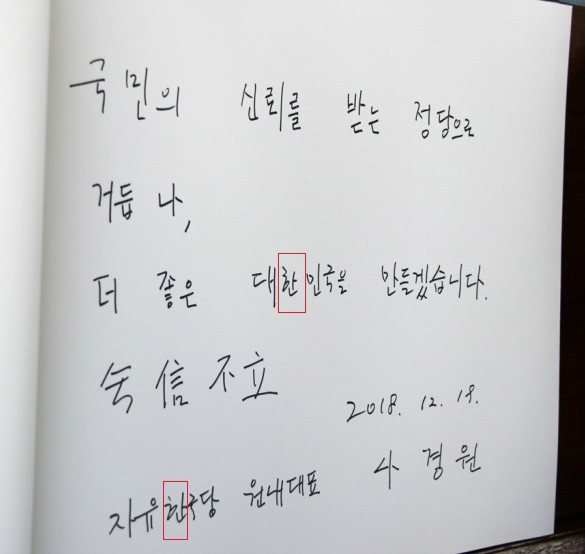 국민의 신뢰를 받는 정당으로
거듭 나,
더 좋은 대한민국을 만들겠습니다.
無信不立
2018. 12. 19.
자유한국당 원내대표 나경원